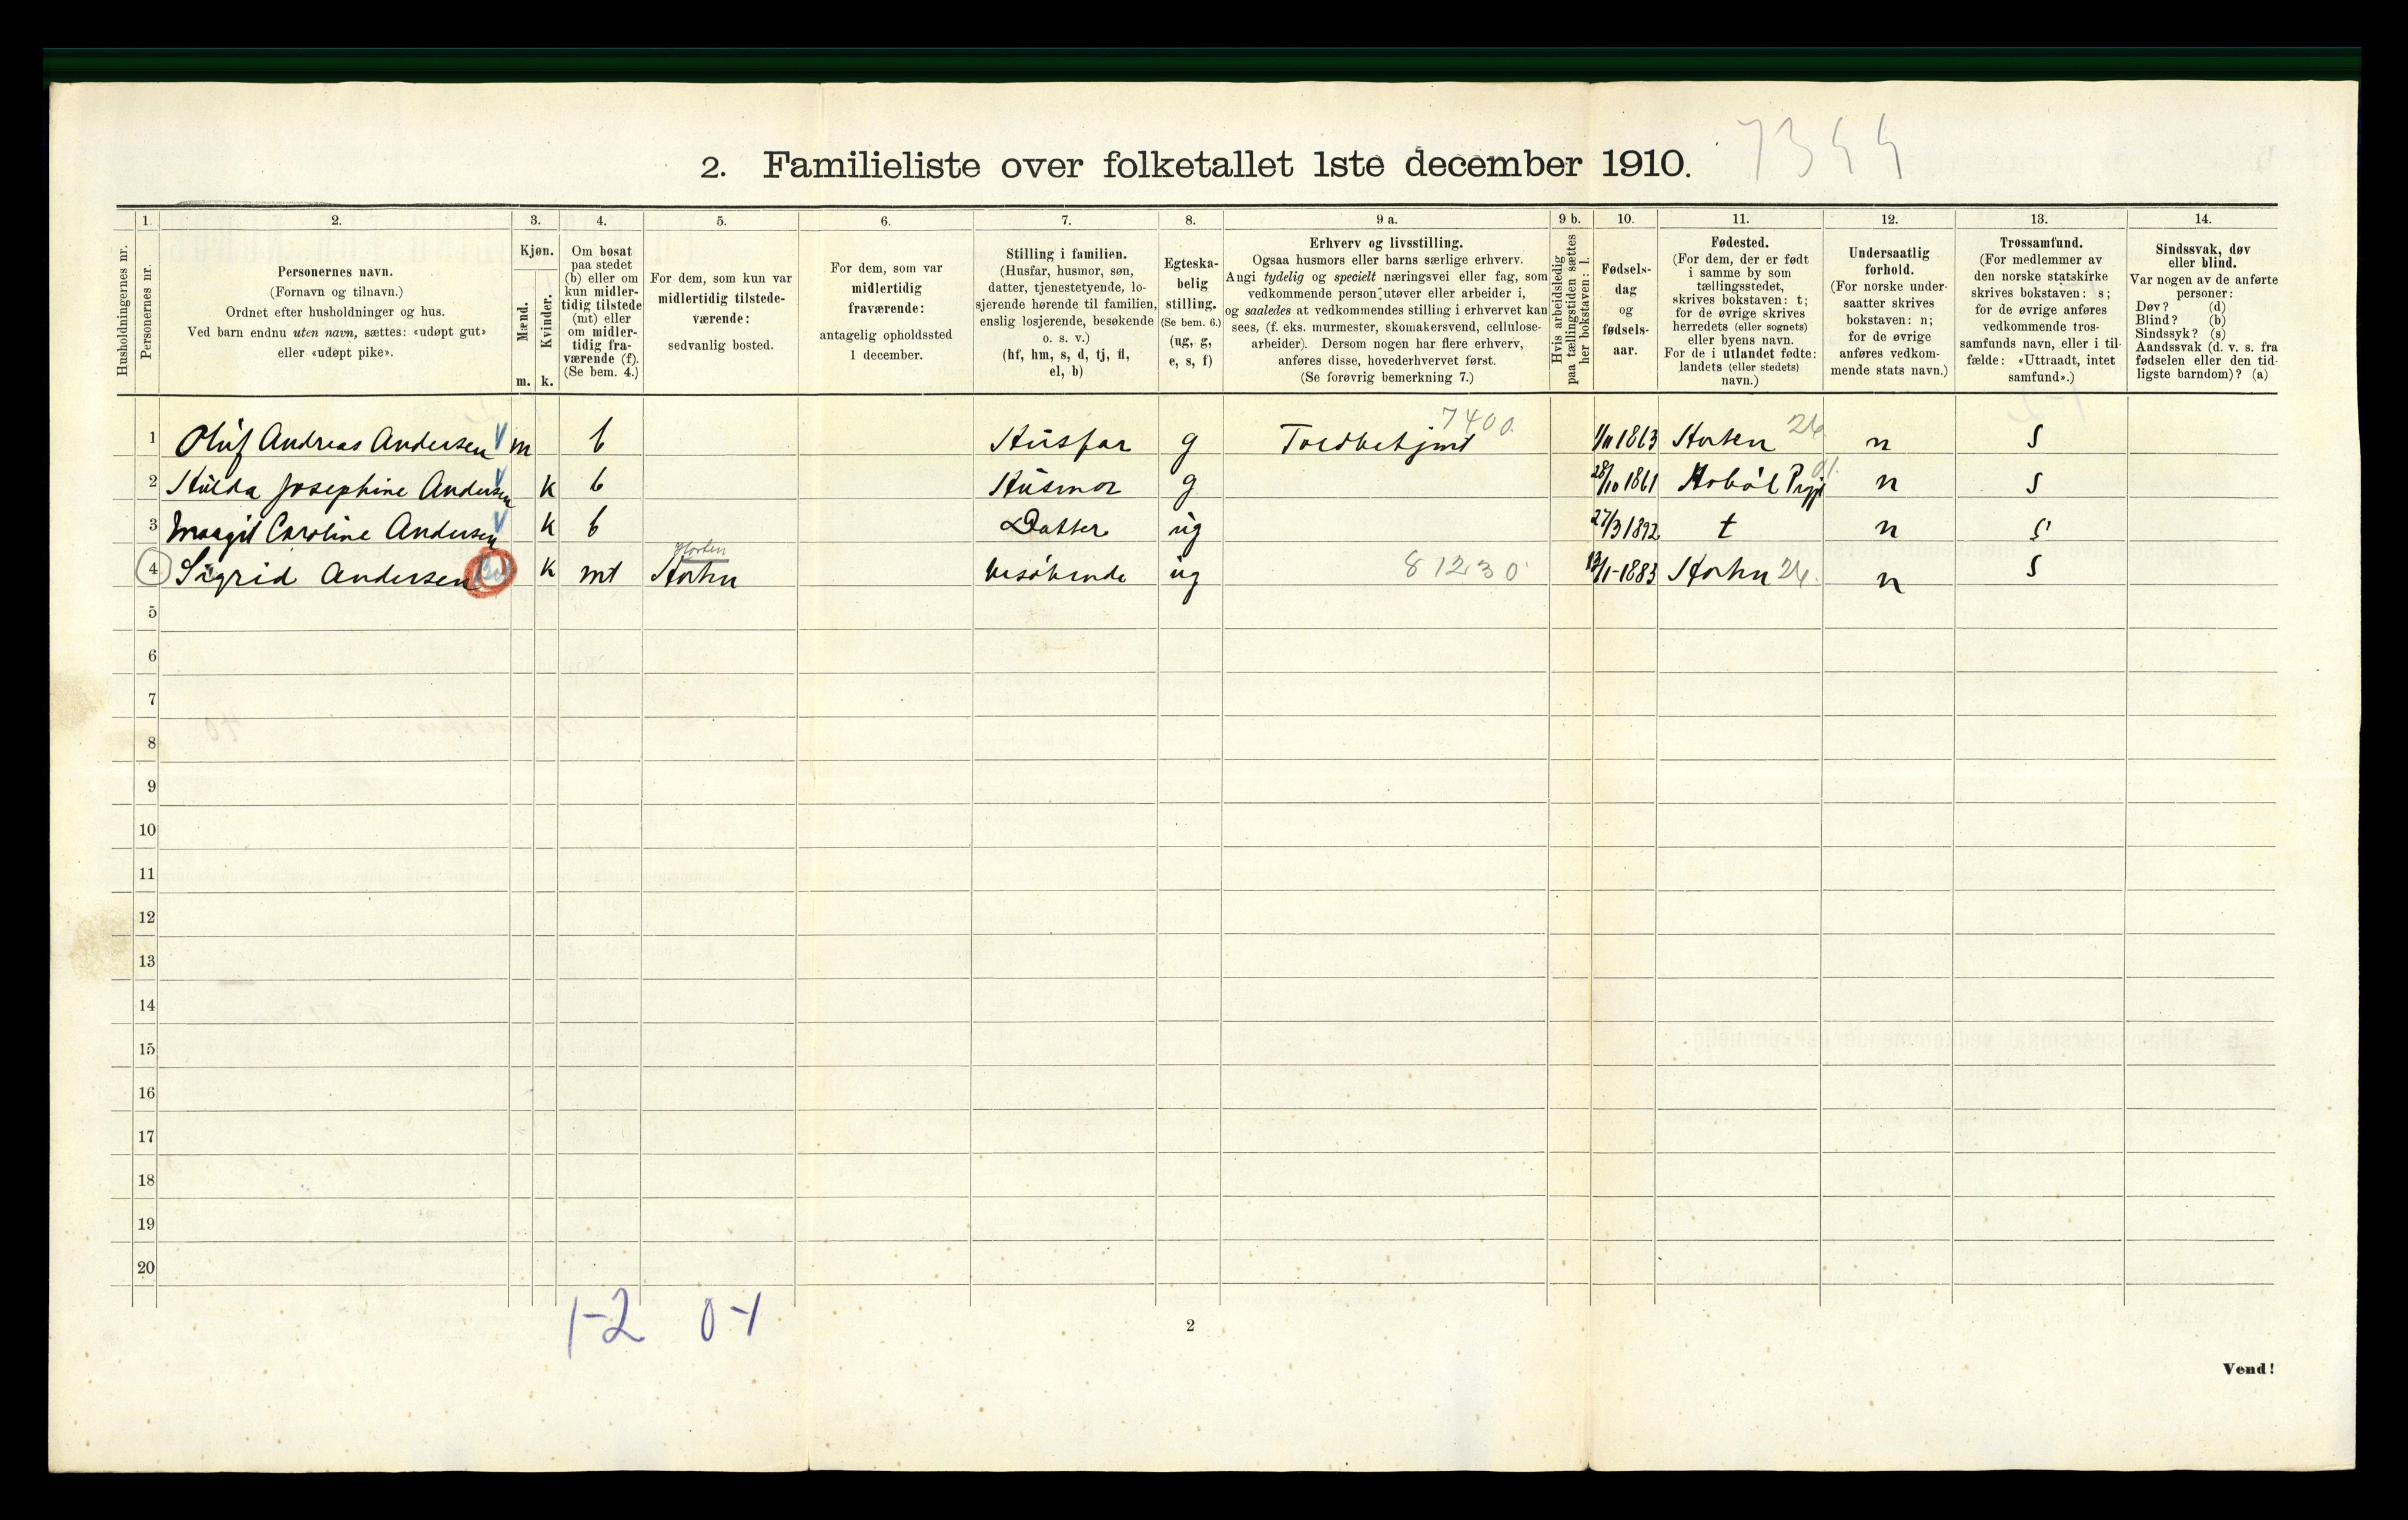 7344
2. Familieliste over folketallet 1ste december 1910.
1. 2. 3. 4. 5. 6. 7. 8. 9 a. 9 b. 10. 11. 12. 13. 14.
Husholdningernes nr.
Personernes nr.
Personernes navn.
(Fornavn og tilnavn.)
Ordnet efter husholdninger og hus.
Ved barn endnu uten navn, sættes: «udøpt gut»
eller «udøpt pike».
Kjøn.
Mænd.
Kvinder.
m. k.
Om bosat
paa stedet
(b) eller om
kun midler-
tidig tilstede
(mt) eller
om midler-
tidig fra-
værende (f).
(Se bem. 4.)
For dem, som kun var
midlertidig tilstede-
værende:
sedvanlig bosted.
For dem, som var
midlertidig
fraværende:
antagelig opholdssted
1 december.
Stilling i familien.
(Husfar, husmor, søn,
datter, tjenestetyende, lo-
sjerende hørende til familien,
enslig losjerende, besøkende
o. s. v.)
(hf, hm, s, d, tj, fl,
el, b)
Egteska-
belig
stilling.
(Se bem. 6.)
(ug, g,
e, s, f)
Erhverv og livsstilling.
Ogsaa husmors eller barns særlige erhverv.
Angi tydelig og specielt næringsvei eller fag, som
vedkommende person utøver eller arbeider i,
og saaledes at vedkommendes stilling i erhvervet kan
sees, (f. eks. murmester, skomakersvend, cellulose-
arbeider). Dersom nogen har flere erhverv,
anføres disse, hovederhvervet først.
(Se forøvrig bemerkning 7.)
Hvis arbeidsledig
paa tællingstiden sættes
her bokstaven: l.
Fødsels-
dag
og
fødsels-
aar.
Fødested.
(For dem, der er født
i samme by som
tællingsstedet,
skrives bokstaven: t;
for de øvrige skrives
herredets (eller sognets)
eller byens navn.
For de i utlandet fødte:
landets (eller stedets)
navn.)
Undersaatlig
forhold.
(For norske under-
saatter skrives
bokstaven: n;
for de øvrige
anføres vedkom-
mende stats navn.)
Trossamfund.
(For medlemmer av
den norske statskirke
skrives bokstaven: s;
for de øvrige anføres
vedkommende tros-
samfunds navn, eller i til-
fælde: «Uttraadt, intet
samfund».)
Sindssvak, døv
eller blind.
Var nogen av de anførte
personer:
Døv? (d)
Blind? (b)
Sindssyk? (s)
Aandssvak (d. v. s. fra
fødselen eller den tid-
ligste barndom)? (a)
7400
1 Oluf Andreas Andersen m b Husfar g Toldbetjent 1/11 1863 Horten 26 n s
2 Hulda Josephine Andersen k b Husmor g 28/10 1861 Hobøl n s
3 Margit Caroline Andersen k b Datter ug 27/3 1892 t n s
Horten
4 Sigrid Andersen k mt Horten besøkende ug 81230 13/1-1883 Horten 26. n s
5
6
7
8
9
10
11
12
13
14
15
16
17
18
19
20
1-2 0-1
2
Vend!